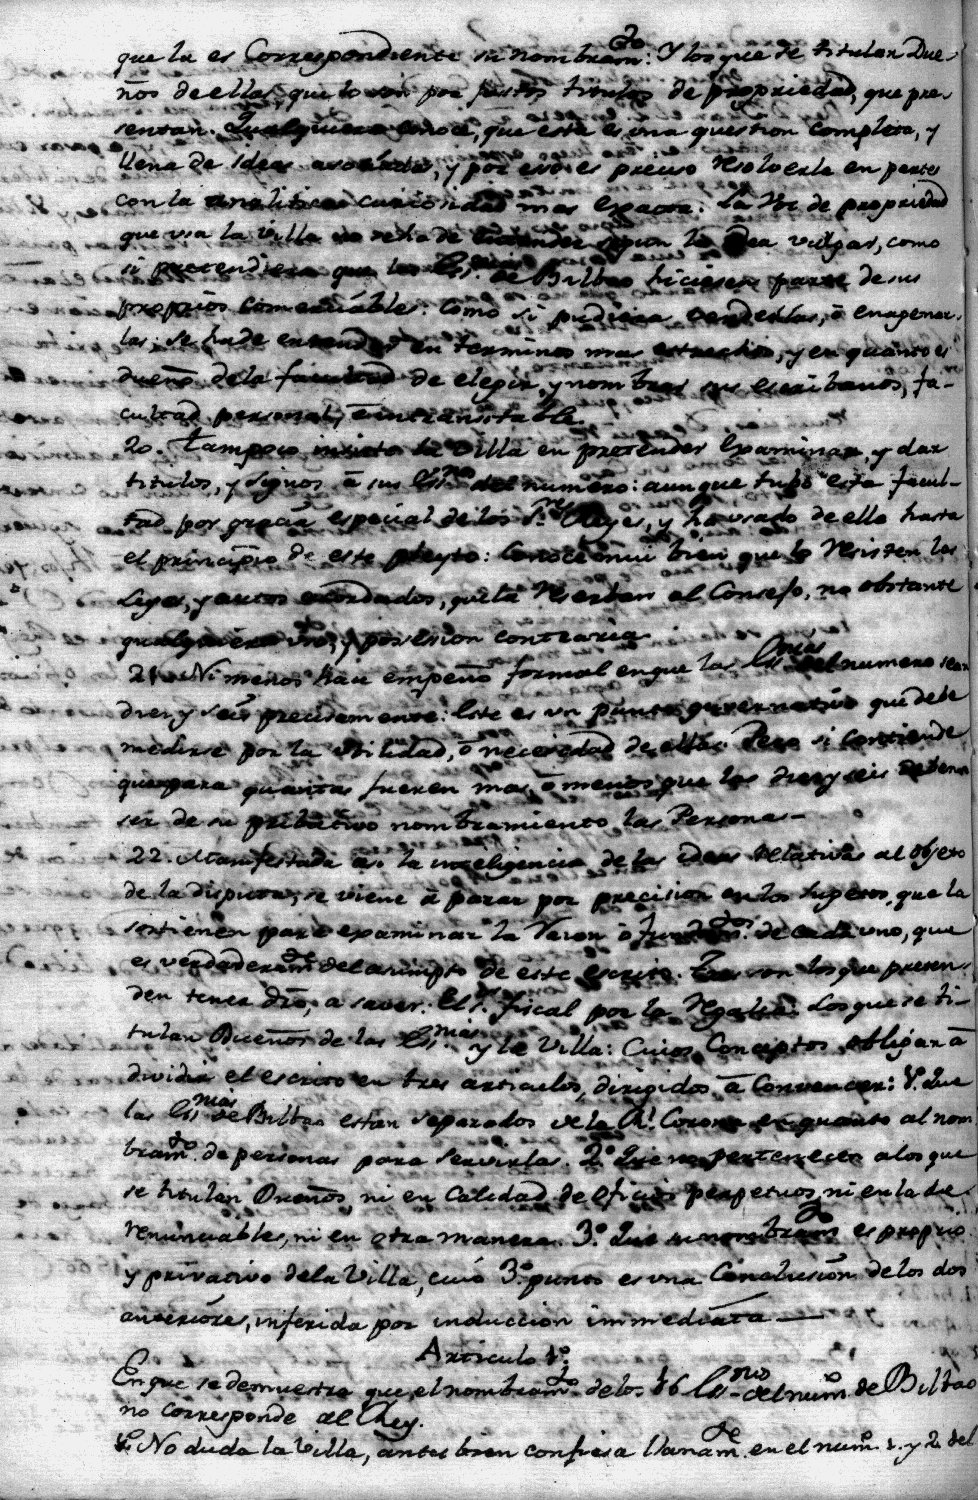 que la es Correspondiente su nombram.to: Y los que se titulan Due-
ños de ellas, que lo son por justos titulos de propriedad, que pre-
sentan. Qualquiera conoce, que esta es una question completa, y
llena de ideas, y por eso es preciso resolverla en partes
con la analitica curiosidad mas exacta: La voz de propriedad
que usa la Villa no se ha de entender segun la idea vulgar, como
si pretendiera que las Es.nias de Bilbao hiciesen parte de sus
proprios comerciables: como si pudiera venderlas, ò enagenar-
las; se ha de entender en terminos mas estrechos, y en quanto es
dueño dela facultad de elegir, y nombrar sus escribanos, fa-
cultad personal, è intransitable.
20. Tampoco insiste la Villa en pretender examinar, y dar
titulos, y signos â sus Es.nos del numero: aunque tubo esta facul-
tad por gracia especial de los S.res Reyes, y ha usado de ella hasta
el principio de este pleyto: Conoce mui bien que lo resisten las
Leyes, y autos acordados, que la reserban al Consejo, no obstante
qualquiera uso, y posesion contraria.
21. Ni menos hace empeño formal en que las Es.nias del numero sean
diez y seis precisamente: Este es un punto gubernativo que debe
medirse por la utilidad, ò necesidad de ellas. Pero si contiende
que para quantas fueren mas, ò menos que las diez y seis deben
ser de su pribativo nombramiento las Personas-
22. Manifestada asi la inteligencia de las ideas relativas al objeto
de la disputa, se viene à parar por precision en los sugetos, que la
sostienen para examinar la razon ò fundam.tos de cada uno, que
es verdaderam.te del asumpto de este escrito. Tres son los que preten-
den tener dro, a saver: El S. Fiscal por la Regalia: Los que se ti-
tulan Dueños de las Es.nias y la Villa: Cuios Conceptos obligan â
dividir el escrito en tres articulos, dirigidos â Convencer: 1.º Que
las Es.nias de Bilbao estan separadas dela R.l Corona en quanto al nom-
bram.to de personas para servirlas. 2.º Que no pertenecen a los que
se titulan Dueños, ni en Calidad de oficios perpetuos, ni en la de
renunciables, ni en otra manera. 3.º Que su nombram.to es proprio
y privativo dela Villa, cuio 3.º punto es una Conclusion de los dos
anteriores, inferida por induccion immediata —
Articulo 1.º
En que se demuestra que el nombram.to de los 16 Es.nos del num.º de Bilbao
no corresponde al Rey.
1.º No duda la Villa, antes bien confiesa llanam.te en el num.º 1. y 2. del